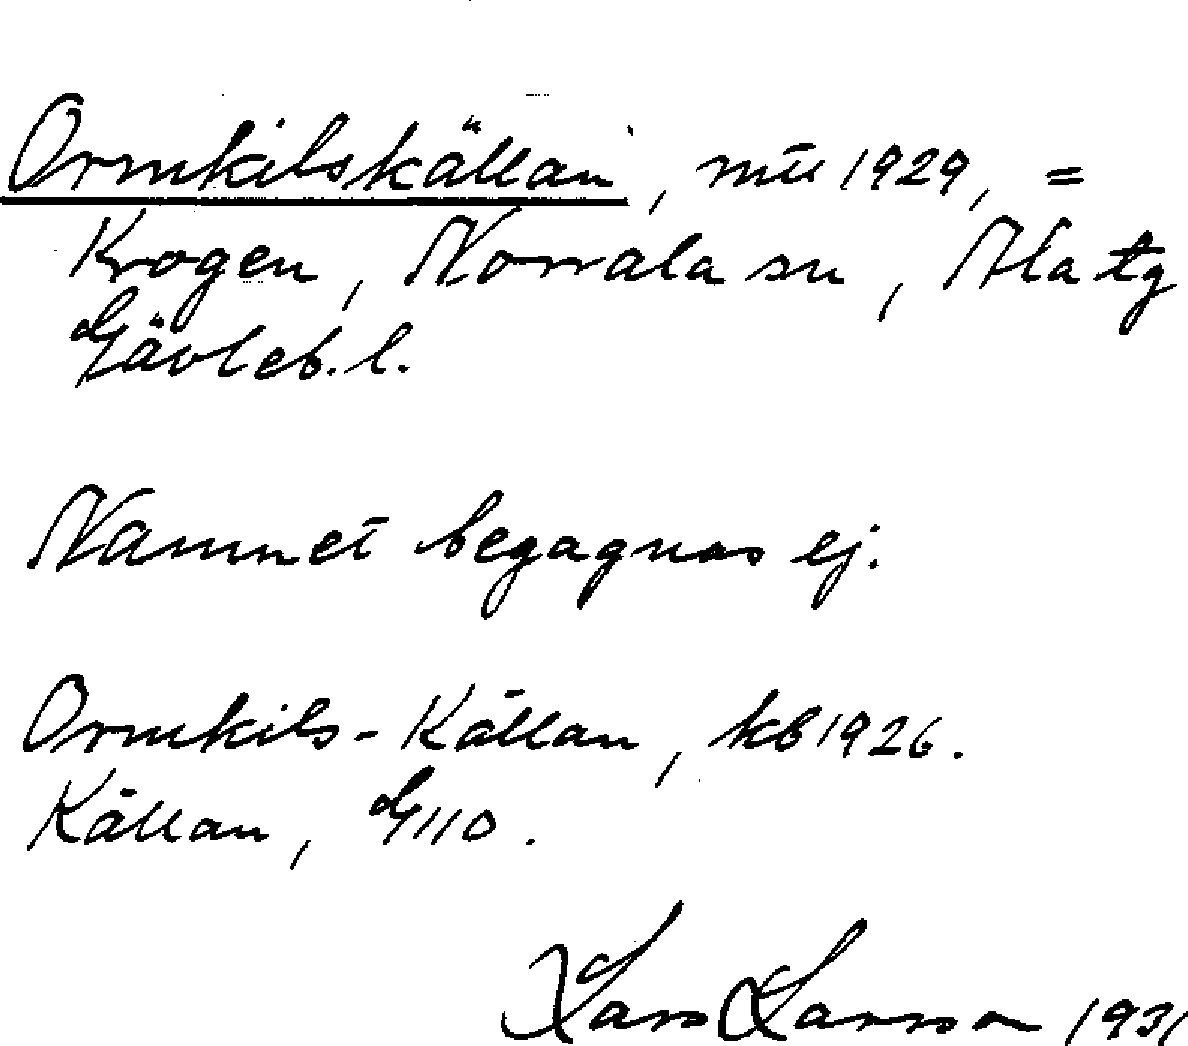 Ormkilskällan, mtl 1929, =
Krogen, Norrala sn, Ala tg
Gävleb. l.
Namnet begagnas ej.
Ormkils-Källan, kb 1926.
Källan, G110.
Lars Larsson 1931